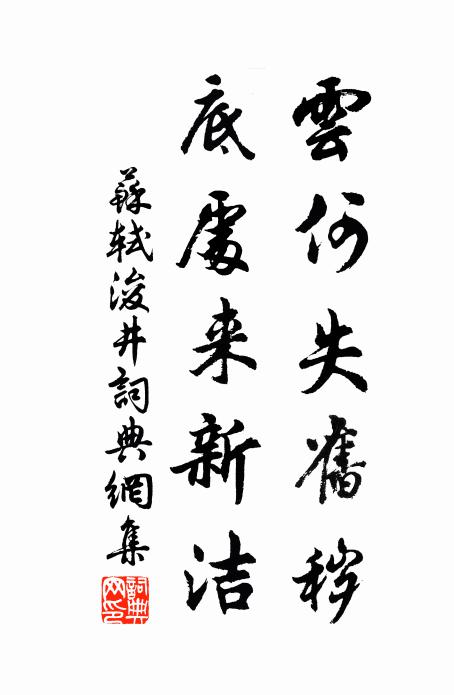 雲何失舊穢
底處来新洁
蘇軾浚井詞典網集
詞典網印